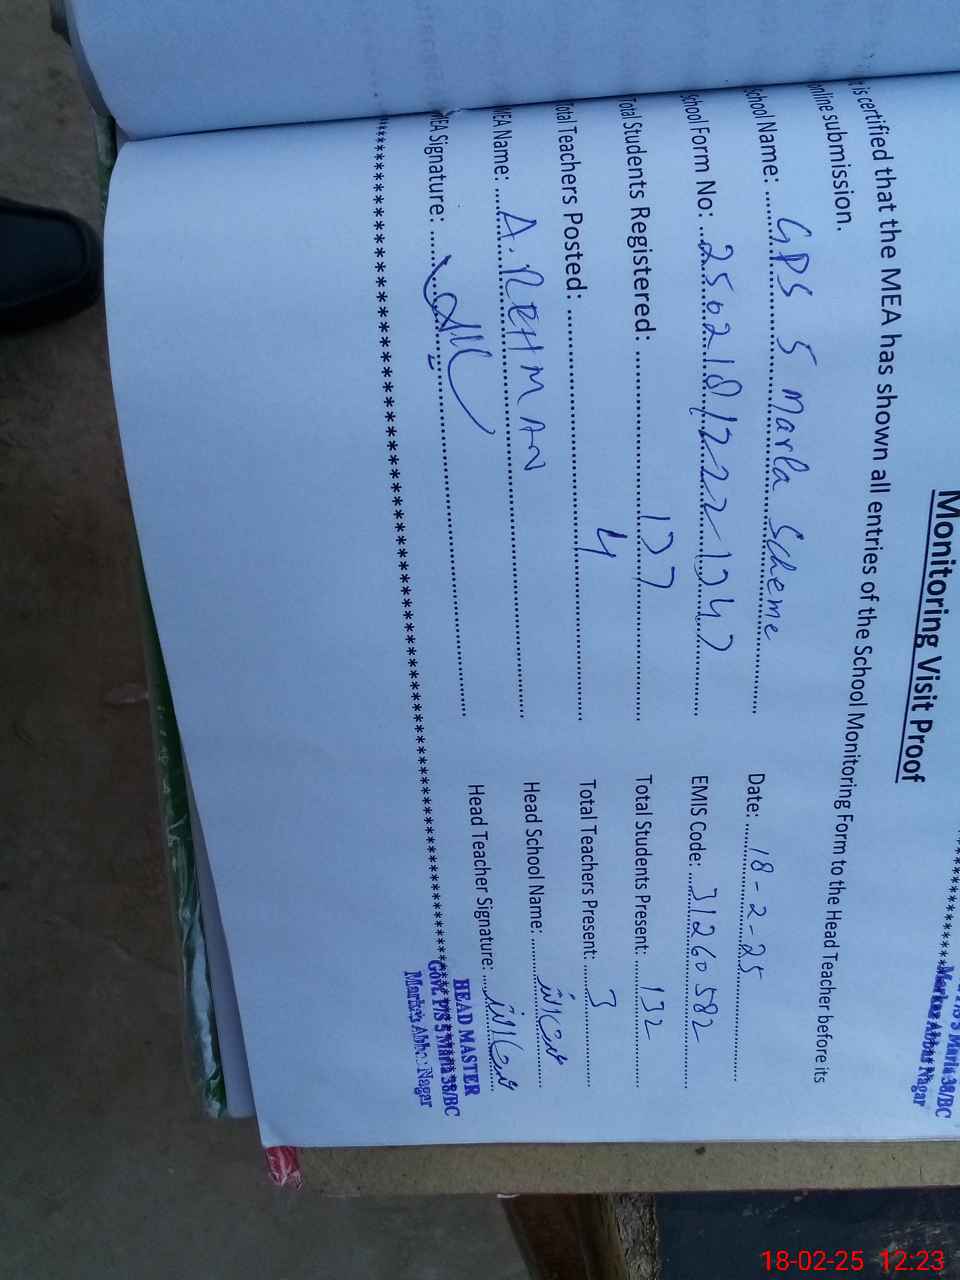 5 Marla 38/BC
Markaz Abbas Nagar
Monitoring Visit Proof
is certified that the MEA has shown all entries of the School Monitoring Form to the Head Teacher before its
online submission.
School Name: GPS 5 Marla Scheme Date: 18-2-25
School Form No: 2502181222-1347 EMIS Code: 31260582
Total Students Registered: 137 Total Students Present: 132
Total Teachers Posted: 4 Total Teachers Present: 3
MEA Name: A. REHMAN Head School Name:
MEA Signature: Head Teacher Signature:
HEAD MASTER
Govt. P/S 5 Marla 38/BC
Markaz Abbas Nagar
18-02-25 12:23